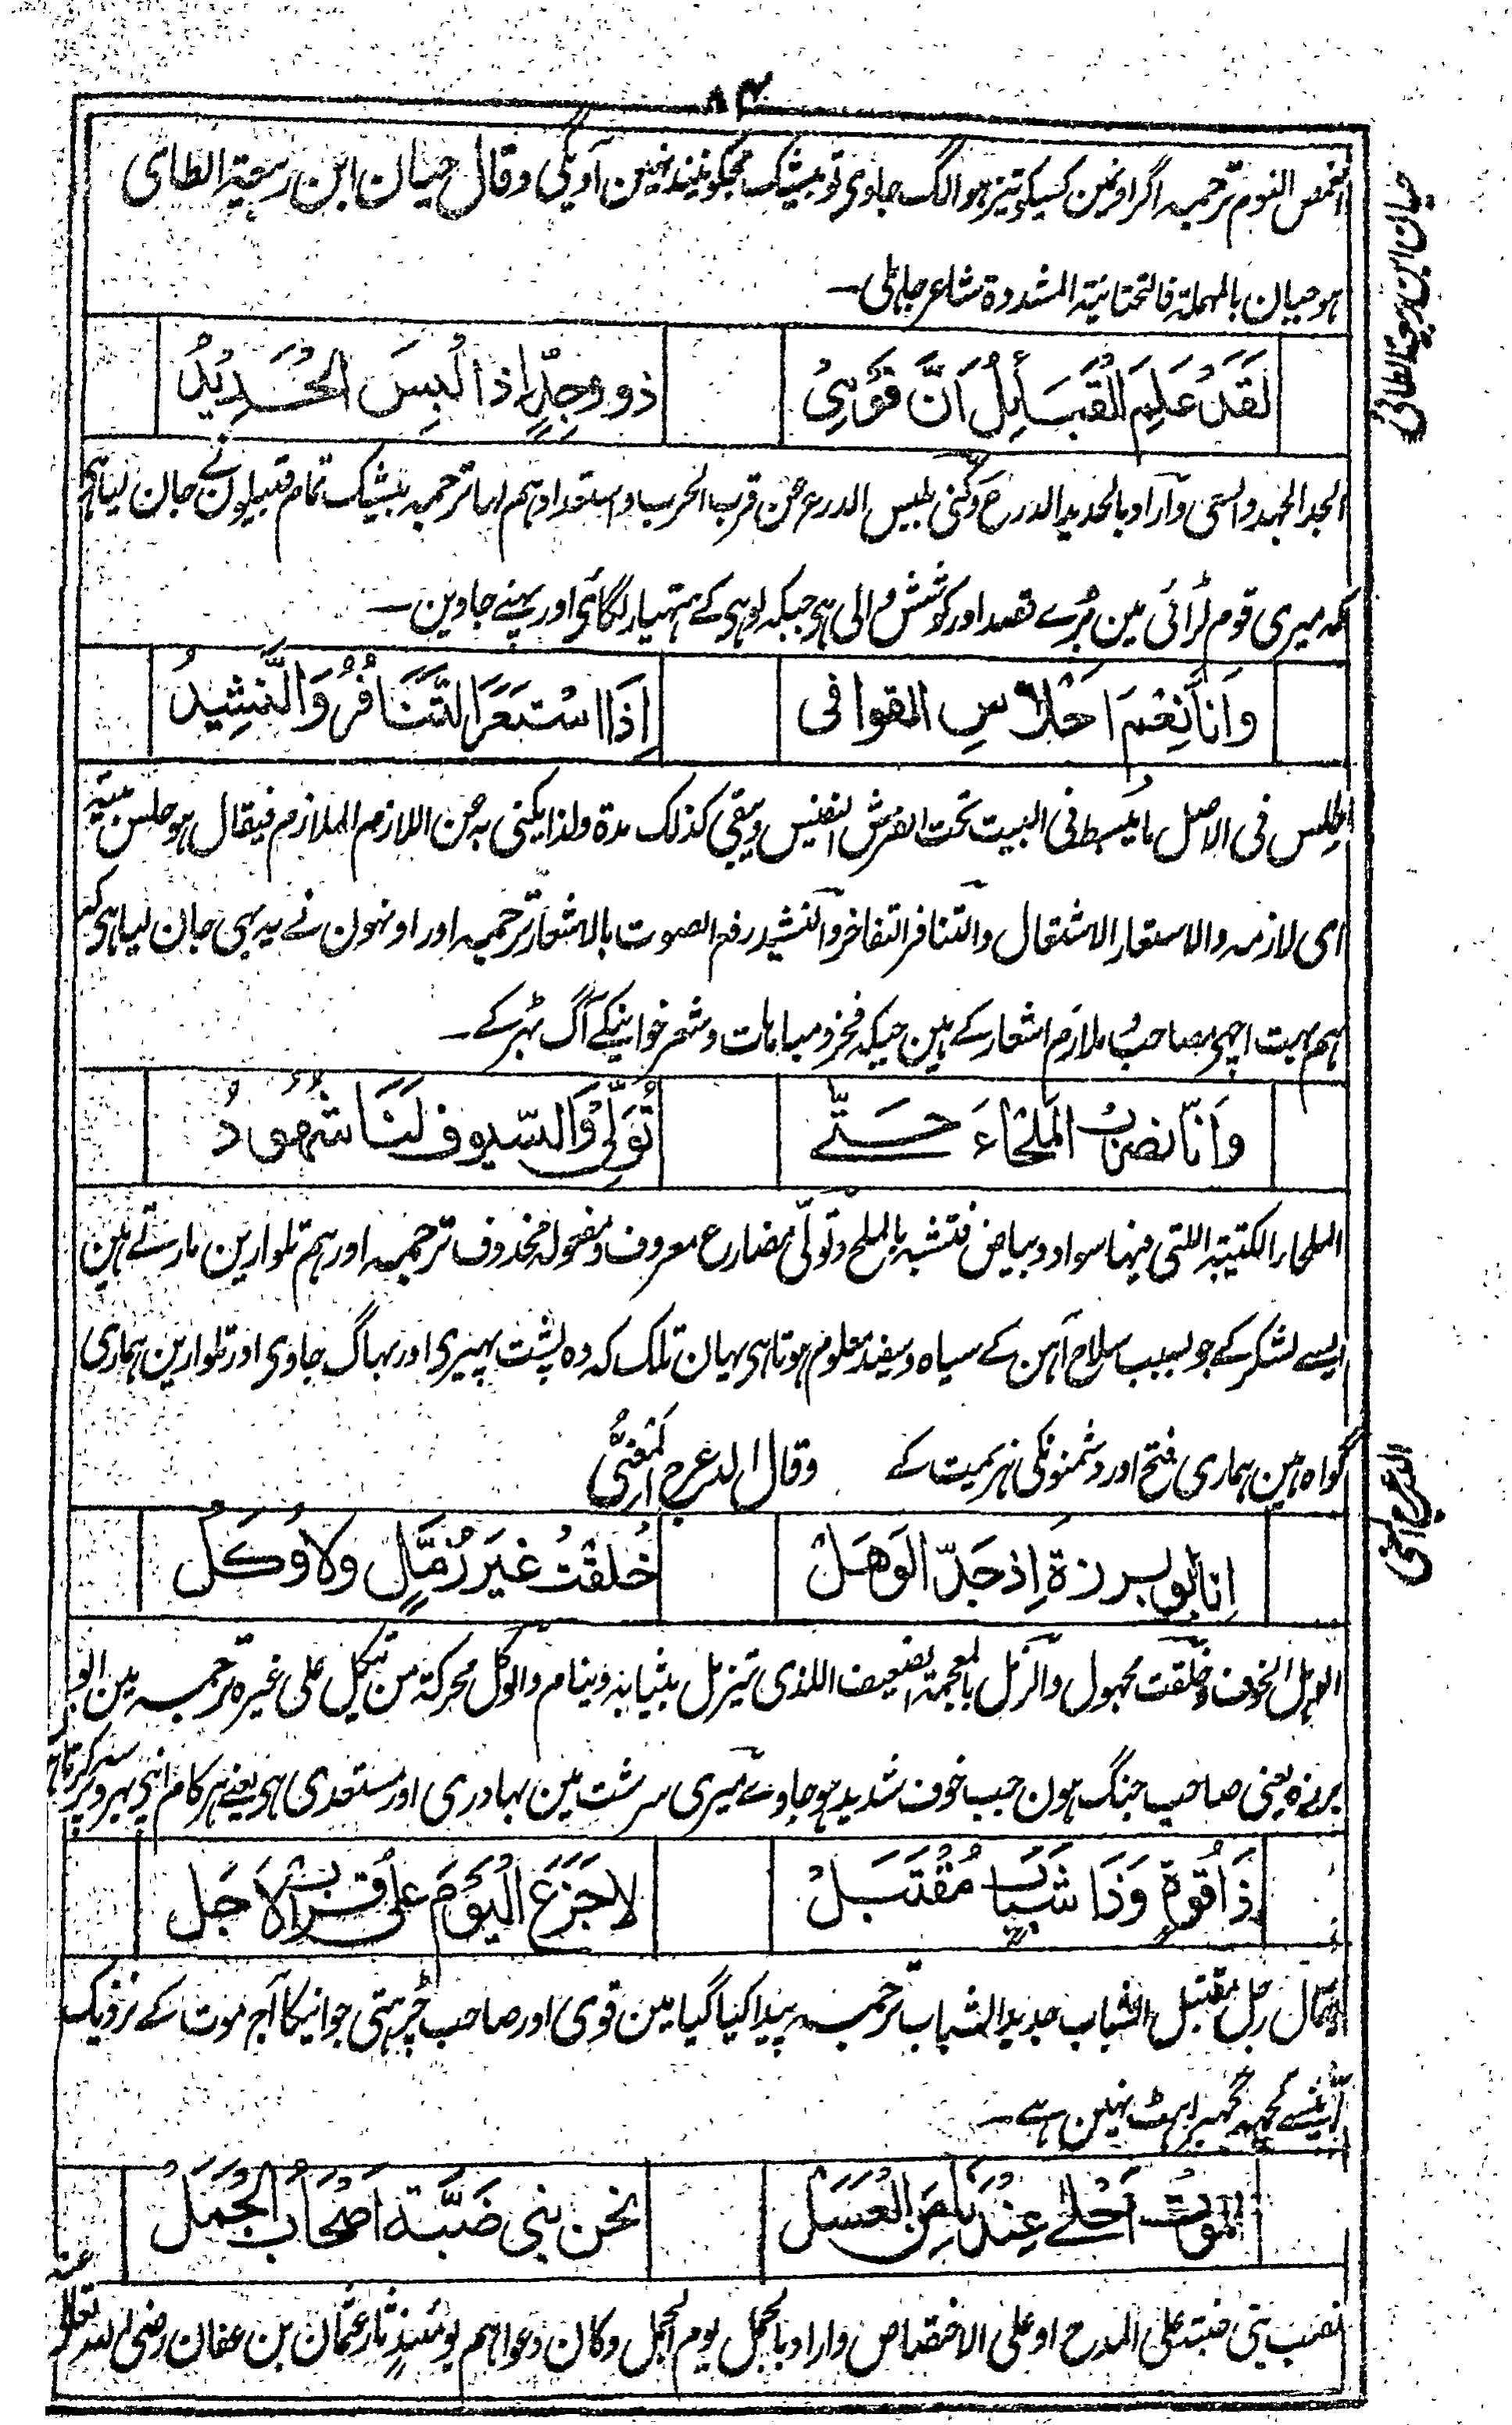 ۸۴
انغمض النوم ترجمہ اگر اونمین کسیکو تیز ہوا لگ جاوی تو بیشک مجکو نیند نہین آویگی وقال حیان ابن ربیعۃ الطائی
حیان ابن ربیعۃ الطائی
ہو حیان بالمہملۃ فالتحتانیۃ المشددۃ شاعر جاہلی۔
لَقَدْ عَلِمَ الْقَبَائِلُ اَنَّ قَوْمِیْ ذوو جِدٍّ اِذا لُبِسَ الْحَدِیْدُ
الجد الجہد والسعی وآراد بالحدید الدرع وکنی بلبس الدرع عن قرب الحرب واستعدادہم لہا ترجمہ بیشک تمام قبیلون نے جان لیا ہی
کہ میری قوم لڑائی مین بڑے قصد اور کوشش والی ہی جبکہ لوہی کے ہتہیار لگائی اور پہنے جاوین۔
وَاَنَّا نِعْمَ اَحْلَاسِ القوافی اِذَا اسْتَعَرَ التَّنَافُرُ وَالنَّشِیْدُ
الحلس فی الاصل ما یبسط فی البیت تحت الفرش النفیس ویبقی کذلک مدۃ ولذا یکنی بہ عن اللازم الملازم فیقال ہو حلس بیتہ
ای لازمہ والاستعار الاشتعال والتنافر التفاخر والنشید رفع الصوت بالاشعار ترجمہ اور اونہون نے یہ بہی جان لیا ہی کہ
ہم بہت اچہی مصاحب و ملازم اشعار کے ہین جبکہ فخر و مباہات و شعر خوانیکے آگ بہڑکے۔
وَاَنَّا نضرب الْمَلْحَاءَ حَتّٰے تُوَلِّیْ وَالسیوف لَنَا شُهُودُ
الملحاء الکتیبۃ اللتی فیہا سواد وبیاض فتشبہ بالملح وتولّی مضارع معروف ومفعولہ محذوف ترجمہ اور ہم تلوارین مارتے ہین
ایسے لشکر کے جو بسبب سلاح آہن کے سیاہ و سفید معلوم ہوتا ہی یہان تلک کہ وہ پشت پہیری اور بہاگ جاوی اور تلوارین ہماری
گواہ ہین ہماری فتح اور دشمنونکی ہزیمیت کے وقال الاعرج المعنّی
الاعرج المعنی
اِنا ابو برزۃ اِذ جَدّ الوَهَلْ خُلِقْتُ غَیرَ زُمَّلٍ ولا وَکَلْ
الوہل الخوف وخُلقت مجہول والزمّل بالمعجمۃ الضعیف اللذی تیزمل بثیابہ وینام والوکل محرکۃ من یتکل علی غیرہ ترجمہ مین ابو
برزہ یعنی صاحب جنگ ہون جب خوف شدید ہو جاوے میری سرشت مین بہادری اور مستعدی ہی یعنے ہر کام اپنی بہروسہ پر کرتا ہون
ذَا قُوۃٍ وَذَا شَبَابٍ مُقْتَبَلْ لا جَزَعَ الْیَوْمَ علی قُرْبِ الْاَجَل
یقال رجل مقتبل الشباب جدید الشباب ترجمہ پیدا کیا گیا مین قوی اور صاحب چڑہتی جوانیکا آج موت کے نزدیک
آنیسے کچہہ گہبراہٹ نہین ہے۔
الموت اَحْلٰے عِنْدَنَا مِنَ العَسَلْ نحن بنی ضَبَّۃ اَصْحَابُ الْجَمَلْ
نصب بنی ضبۃ علی المدح او علی الاختصاص واراد بالجمل یوم الجمل وکان دعواہم یومئذٍ ثار عثمان بن عفان رضی اللہ تعالی عنہ